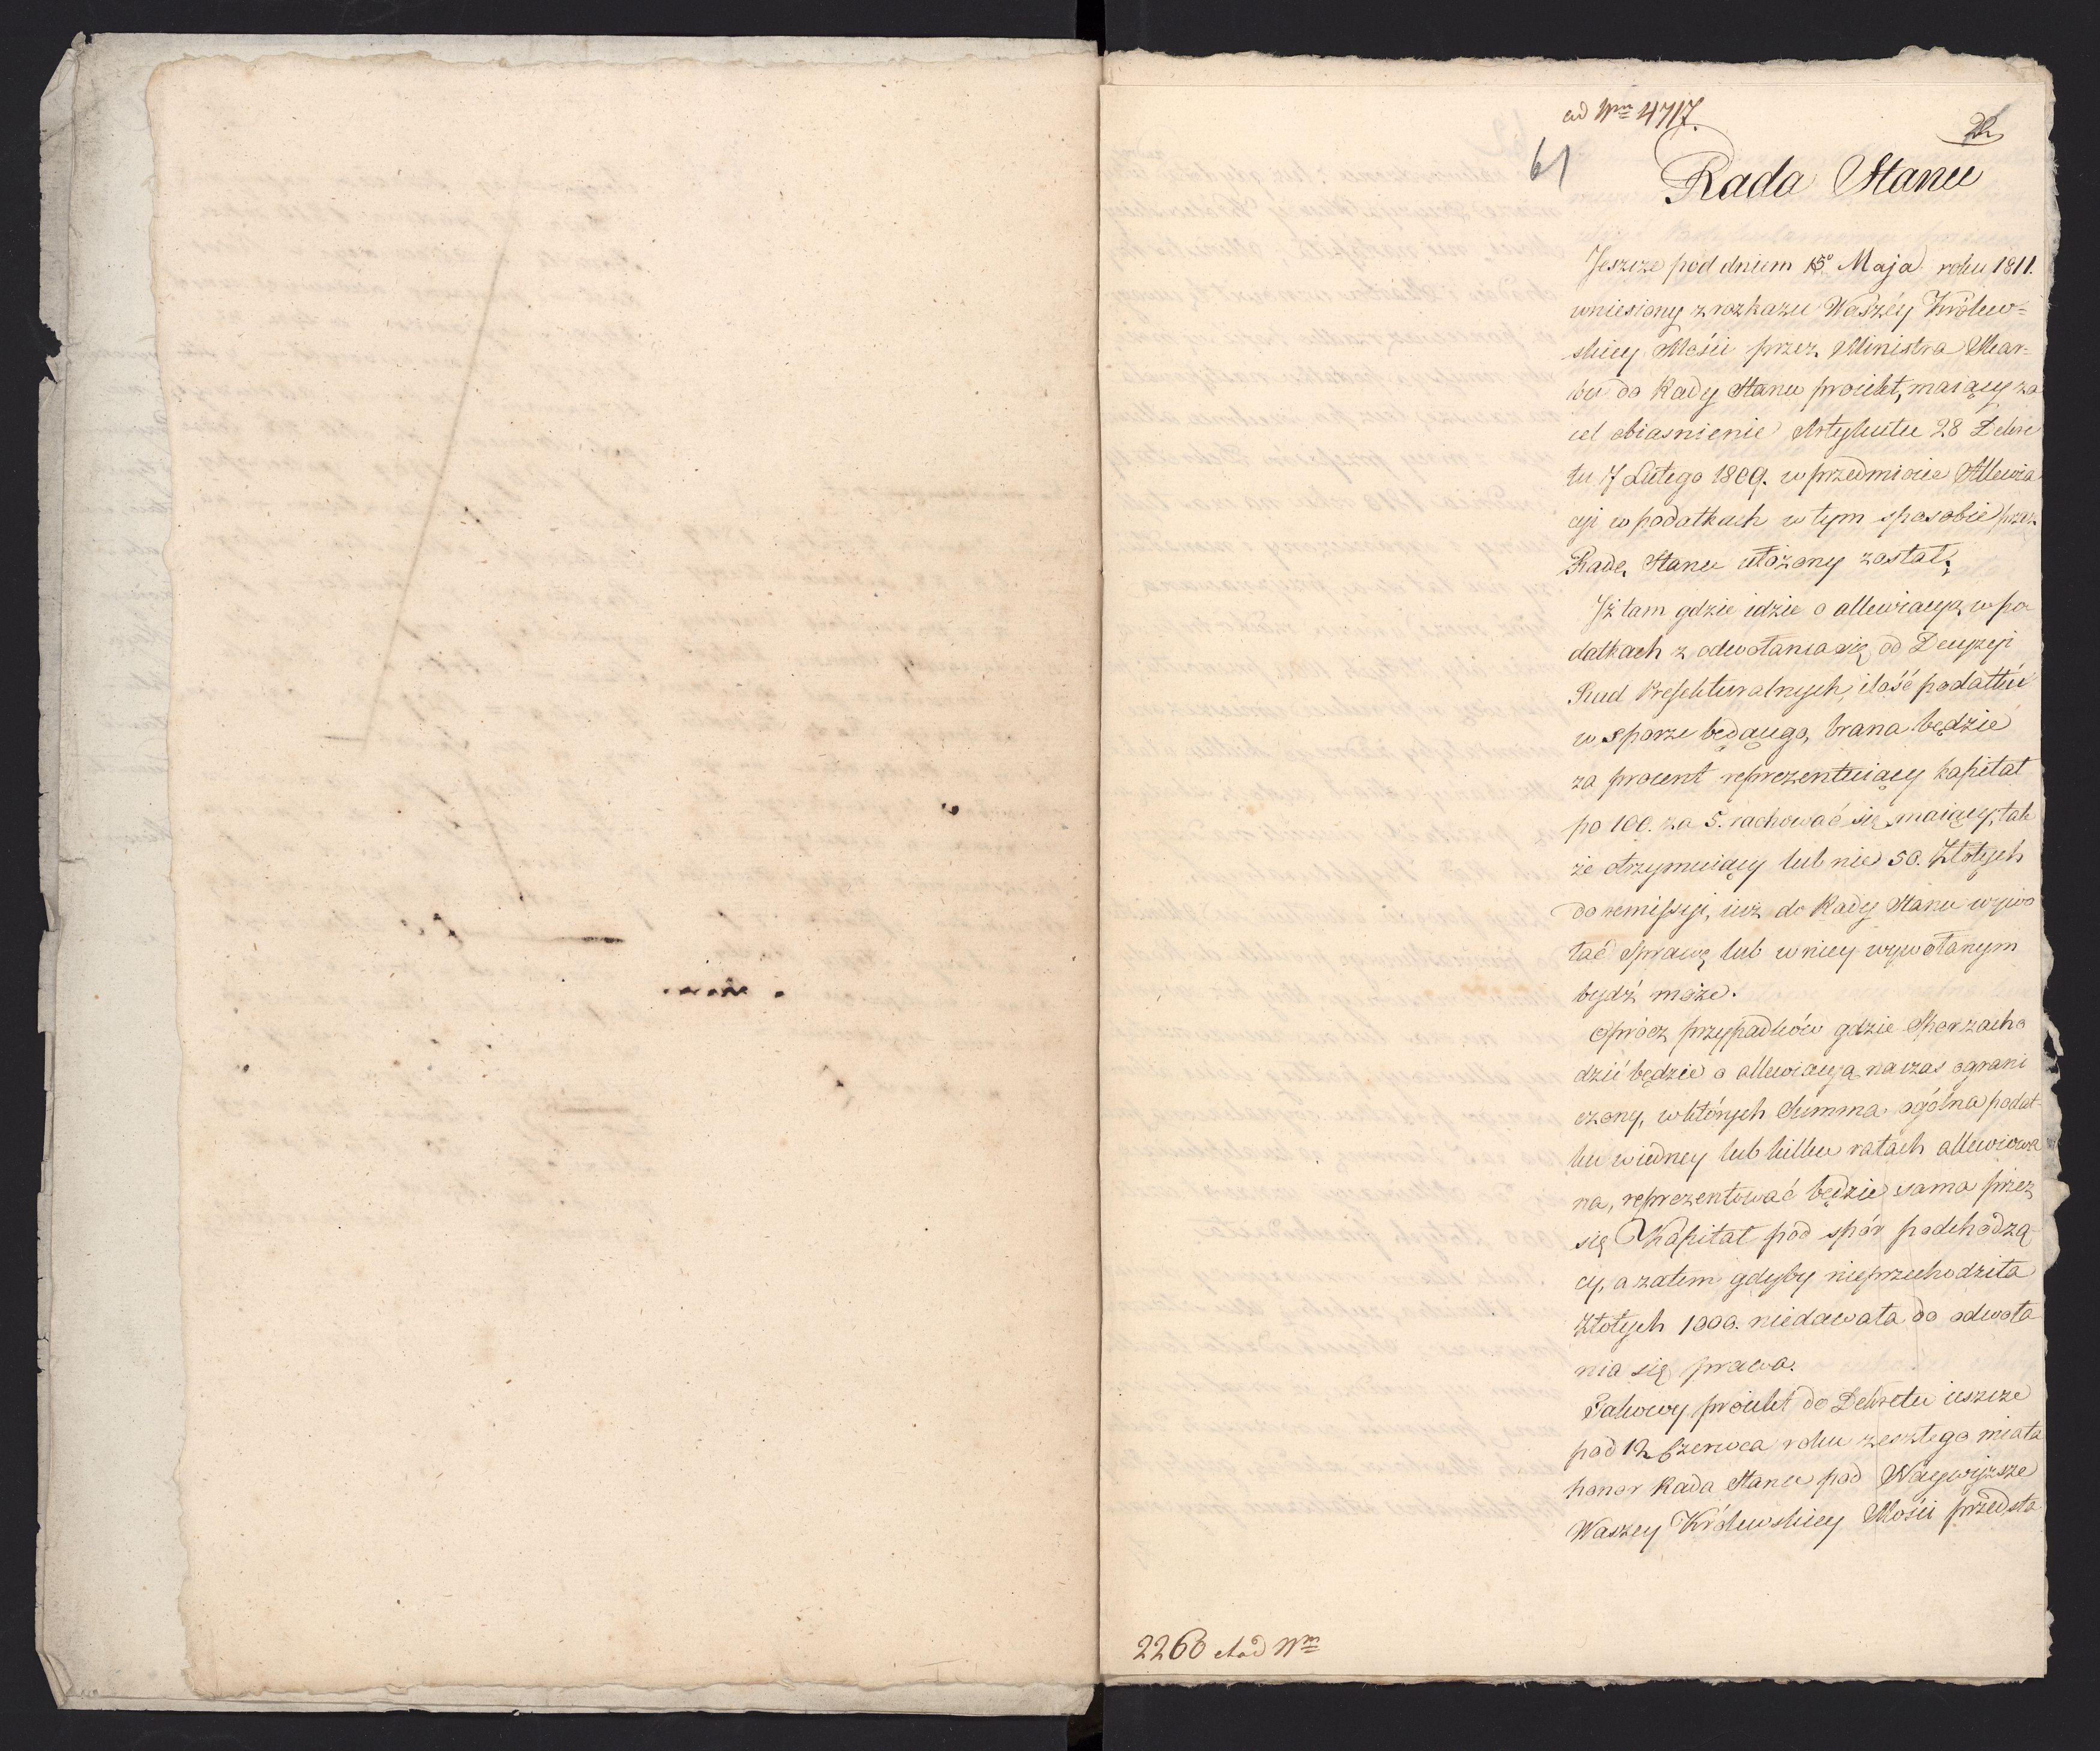 ad Nrm 4717.
61
Rada Stanu
Jeszcze pod dniem 15º Maja roku 1811.
wniesiony z rozkazu Waszéy Królew=
skiey Mości przez Ministra Skar=
bu do Rady Stanu proiekt, maiący za
cel obiasnienie Artykułu 28 Dekre
tu 7 Lutego 1809. w przedmiocie Allewia
cyi w podatkach w tym sposobie przez
Radę Stanu ułożony został;
Jż tam gdzie idzie o allewiacyą w po
datkach z odwołania się od Decyzyi
Rad Prefekturalnych, ilość podatku
w sporze będącego, brana będzie
za procent reprezentuiący kapitał
po 100. za 5. rachować się maiący, tak
że otrzymuiący lub nie 50. Złotych
do remissyi, iuż do Rady Stanu wywo
łać sprawę lub w niey wywołanym
bydź może.
Oprócz przypadków gdzie Spor zacho
dzić będzie o allewiacyą na czas ograni
czony, w których Summa ogólna podat-
ku w iedney lub kilku ratach allewiowa
na, reprezentować będzie sama przez
się Kapitał pod spór podchodzą
cy, a zatem gdyby nieprzechodziła
Złotych 1000. niedawała do odwoła
nia się prawa.
Takowy proiekt do Dekretu ieszcze
pod 12 Czerwca roku zeszłego miała
honor Rada Stanu pod Naywyższe
Waszey Królewskiey Mości przedsta
2260 Nrm